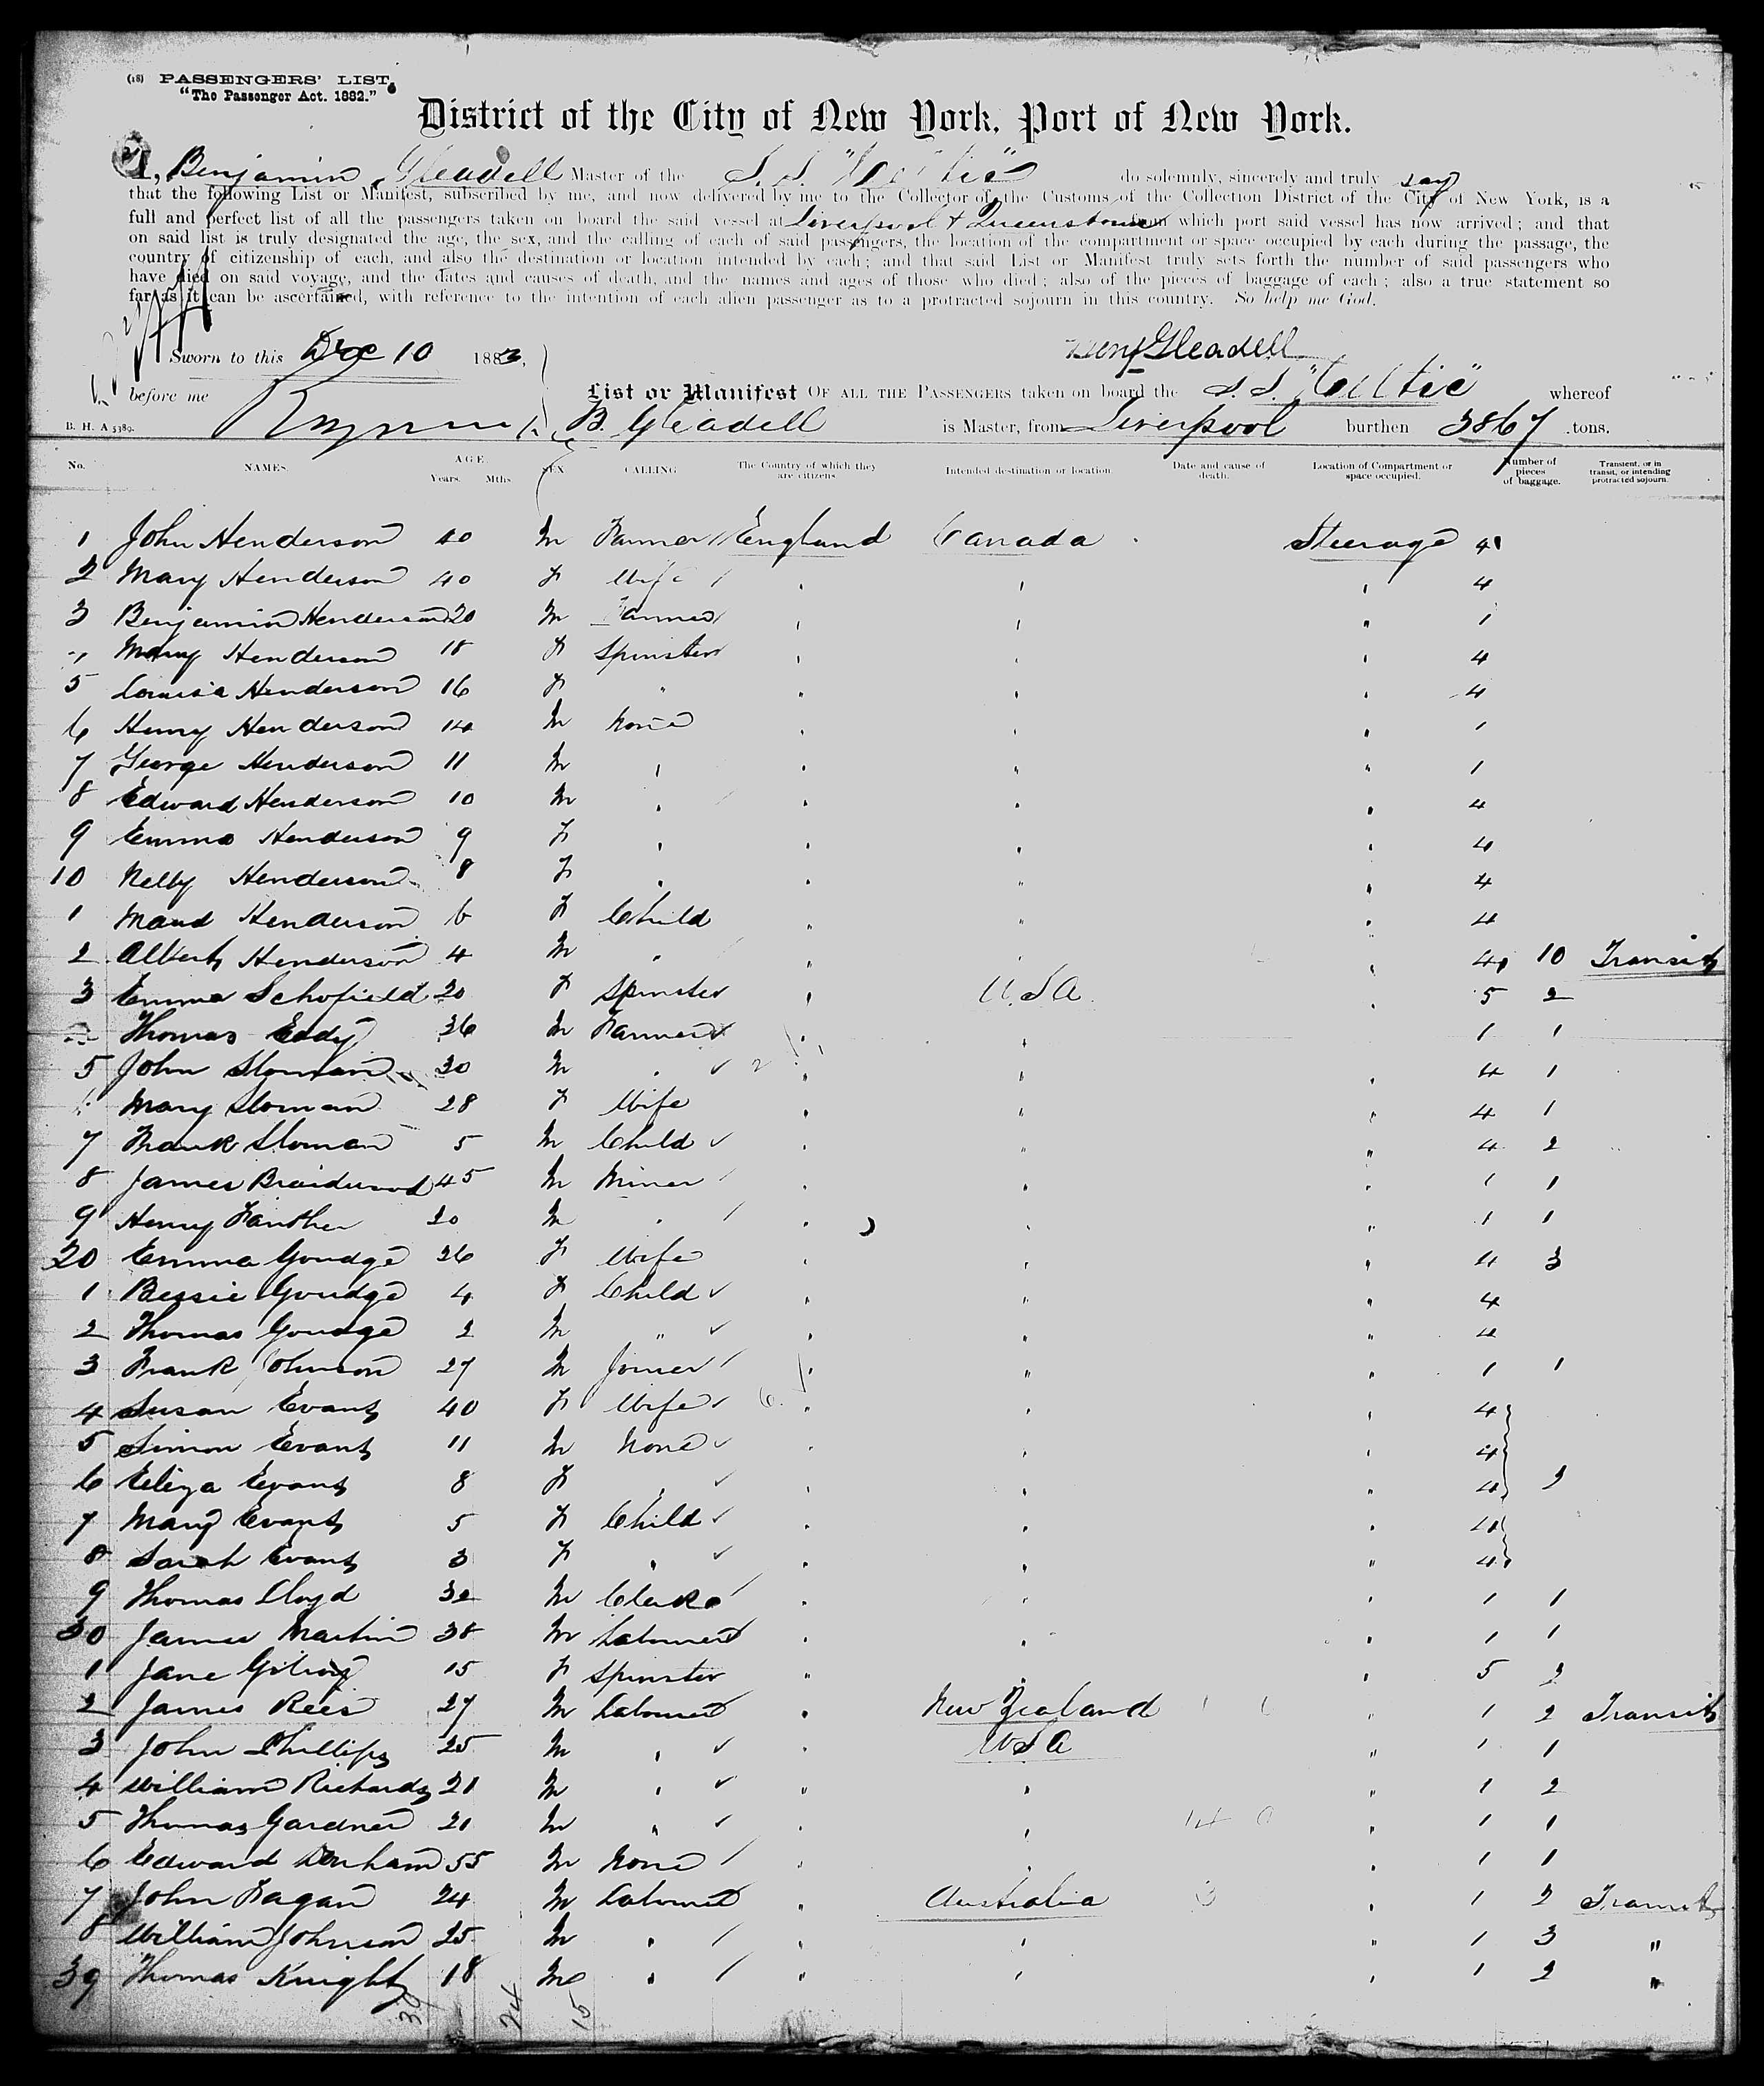 (18) PASSENGERS' LIST.
"The Passenger Act. 1882."
District of the City of New York, Port of New York.
I, Benjamin Gleadell Master of the S.S. "Celtic" do solemnly, sincerely and truly say
that the following List or Manifest, subscribed by me, and now delivered by me to the Collector of the Customs of the Collection District of the City of New York, is a
full and perfect list of all the passengers taken on board the said vessel at Liverpool + Queenstown from which port said vessel has now arrived; and that
on said list is truly designated the age, the sex, and the calling of each of said passengers, the location of the compartment or space occupied by each during the passage, the
country of citizenship of each, and also the destination or location intended by each; and that said List or Manifest truly sets forth the number of said passengers who
have died on said voyage, and the dates and causes of death, and the names and ages of those who died; also of the pieces of baggage of each; also a true statement so
far as it can be ascertained, with reference to the intention of each alien passenger as to a protracted sojourn in this country. So help me God.
Sworn to this Dec 10 1883, Benj Gleadell
before me List or Manifest OF ALL THE PASSENGERS taken on board the S.S. "Celtic" whereof
B. H. A 5389. B. Gleadell is Master, from Liverpool burthen 3867 tons.
No. NAMES. AGE. Years. Mths. SEX CALLING The Country of which they are citizens. Intended destination or location. Date and cause of death. Location of Compartment or space occupied. Number of pieces of baggage. Transient, or in transit, or intending protracted sojourn.
1 John Henderson 40 M Farmer England Canada Steerage 4
2 Mary Henderson 40 F Wife " " " 4
3 Benjamin Henderson 20 M Farmer " " " 1
4 Mary Henderson 18 F Spinster " " " 4
5 Louisa Henderson 16 F " " " " 4
6 Henry Henderson 14 M None " " " 1
7 George Henderson 11 M " " " " 1
8 Edward Henderson 10 M " " " " 4
9 Emma Henderson 9 F " " " " 4
10 Nelly Henderson 8 F " " " " 4
1 Maud Henderson 6 F Child " " " 4
2 Albert Henderson 4 M " " " " 4 10 Transit
3 Emma Schofield 20 F Spinster " U.S.A. " 5 2
Thomas Eddy 36 M Farmer " " 1 1
5 John Sloman 30 M " " " " 4 1
Mary Sloman 28 F Wife " " " 4 1
7 Frank Sloman 5 M Child " " " 4 2
8 James Braidwood 45 M Miner " " " 1 1
9 Henry 20 M " " " " 1 1
20 Emma Goudge 26 F Wife " " " 4 3
1 Bessie Goudge 4 F Child " " " 4
2 Thomas Goudge 2 M " " " " 4
3 Frank Johnson 27 M Joiner " " " 1 1
4 Susan Evans 40 F Wife " " " 4
5 Simon Evans 11 M None " " " 4
6 Eliza Evans 8 F " " " " 4 2
7 Mary Evans 5 F Child " " " 4
8 Sarah Evans 3 F " " " " 4
9 Thomas Lloyd 32 M Clerk " " " 1 1
30 James Martin 38 M Labourer " " " 1 1
1 Jane 15 F Spinster " " " 5 2
2 James Rees 27 M Labourer " New Zealand " 1 2 Transit
3 John Phillips 25 M " " U S A " 1 1
4 William Richards 21 M " " " " 1 2
5 Thomas Gardner 21 M " " " " 1 1
6 Edward Denham 55 M None " " " 1 1
7 John Fagan 24 M Labourer " Australia " 1 2 Transit
8 William Johnson 25 M " " " " 1 3 "
39 Thomas Knight 18 M " " " " 1 2 "
24 15